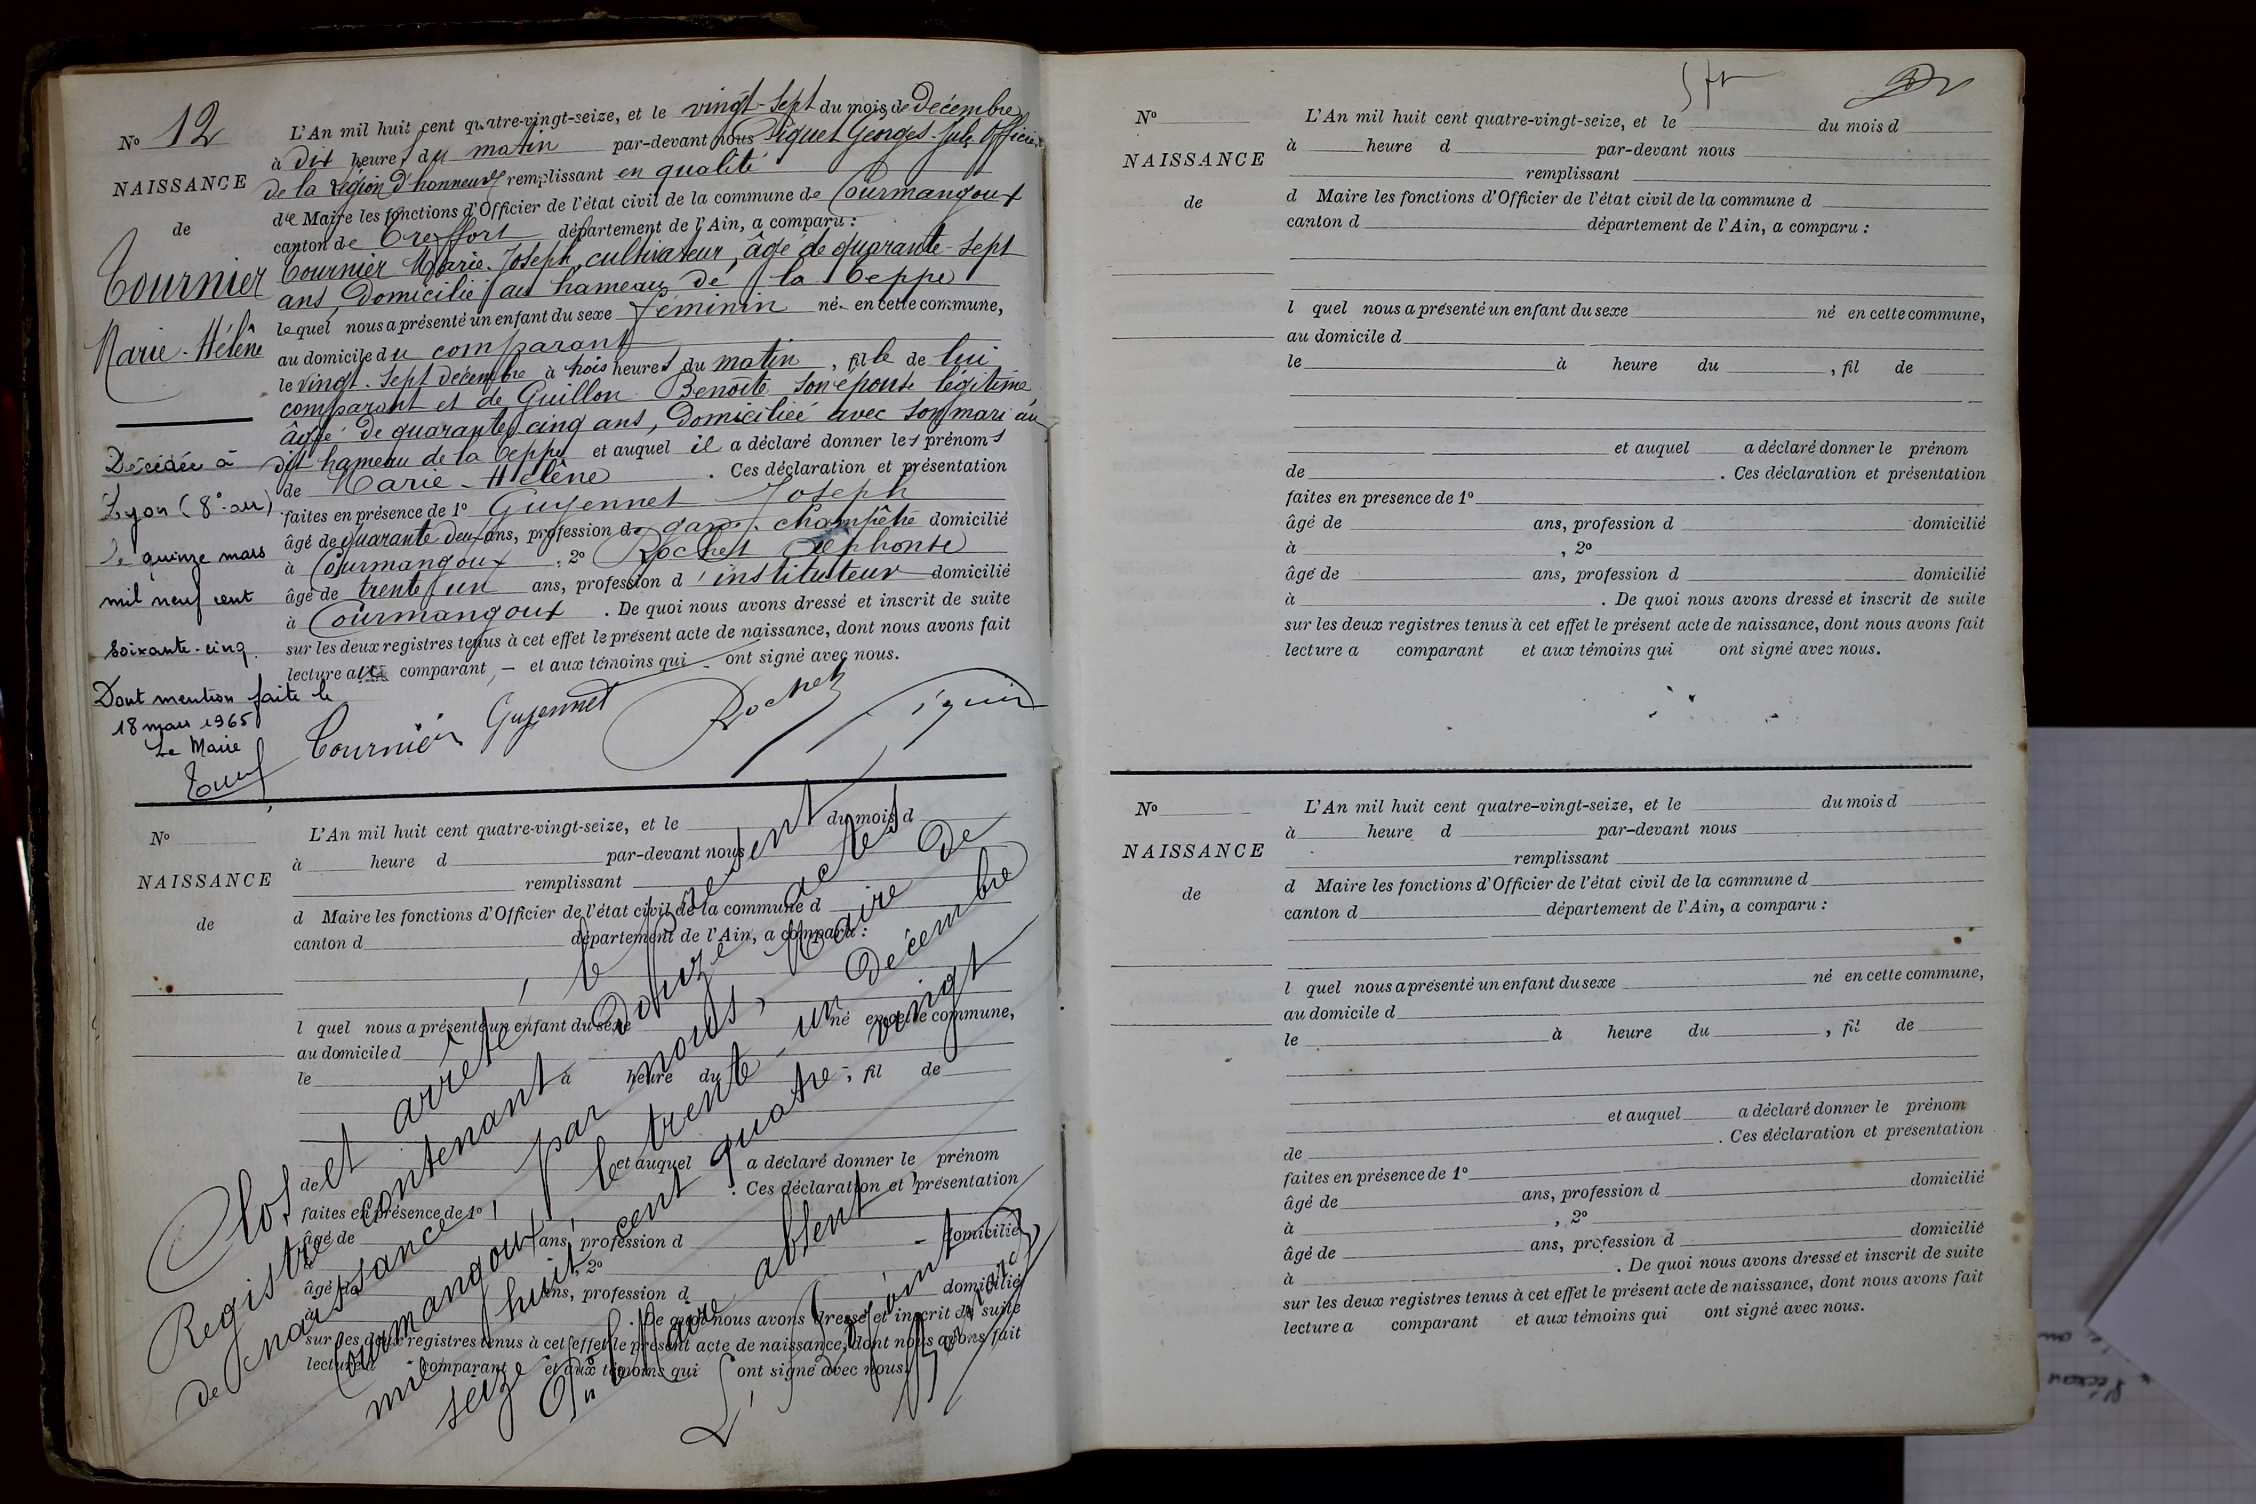 N° 12
NAISSANCE
de
Tournier
Marie-Hélène
Décédée à
Lyon (8e arr)
le quinze mars
mil neuf cent
soixante-cinq.
Dont mention faite le
18 mars 1965
Le Maire
L'An mil huit cent quatre-vingt-seize, et le vingt-sept du mois de Décembre
à dix heures du matin par-devant nous Piquet Georges-Jules Officier
de la légion d'honneur remplissant en qualité
de Maire les fonctions d'Officier de l'état civil de la commune de Courmangoux
canton de Treffort département de l'Ain, a comparu :
Tournier Marie-Joseph, cultivateur, âgé de quarante-sept
ans, domicilié au hameau de la Teppe
lequel nous a présenté un enfant du sexe féminin né en cette commune,
au domicile du comparant
le vingt-sept décembre à trois heures du matin, fille de lui
comparant et de Guillon Benoite son épouse légitime
âgée de quarante-cinq ans, domiciliée avec son mari au
dit hameau de la Teppe et auquel il a déclaré donner les prénoms
de Marie-Hélène . Ces déclaration et présentation
faites en présence de 1° Guyennet Joseph
âgé de quarante deux ans, profession de garde-champêtre domicilié
à Courmangoux , 2° Rochet
âgé de trente un ans, profession d'instituteur domicilié
à Courmangoux . De quoi nous avons dressé et inscrit de suite
sur les deux registres tenus à cet effet le présent acte de naissance, dont nous avons fait
lecture au comparant, – et aux témoins qui ont signé avec nous.
Tournier Guyennet Rochet
N°
NAISSANCE
de
L'An mil huit cent quatre-vingt-seize, et le du mois d
à heure d par-devant nous
remplissant
d Maire les fonctions d'Officier de l'état civil de la commune d
canton d département de l'Ain, a comparu :
l quel nous a présenté un enfant du sexe né en cette commune,
au domicile d
le à heure du , fil de
et auquel a déclaré donner le prénom
de . Ces déclaration et présentation
faites en présence de 1°
âgé de ans, profession d domicilié
à , 2°
âgé de ans, profession d domicilié
à . De quoi nous avons dressé et inscrit de suite
sur les deux registres tenus à cet effet le présent acte de naissance, dont nous avons fait
lecture a comparant et aux témoins qui ont signé avec nous.
Clos et arrêté, le présent
Registre contenant douze actes
de naissance, par nous, Maire de
Courmangoux, le trente-un Décembre
mil huit cent quatre vingt
seize
Pr le Maire absent
L'Adjoint
N°
NAISSANCE
de
L'An mil huit cent quatre-vingt-seize, et le du mois d
à heure d par-devant nous
remplissant
d Maire les fonctions d'Officier de l'état civil de la commune d
canton d département de l'Ain, a comparu :
l quel nous a présenté un enfant du sexe né en cette commune,
au domicile d
le à heure du , fil de
et auquel a déclaré donner le prénom
de . Ces déclaration et présentation
faites en presence de 1°
âgé de ans, profession d domicilié
à , 2°
âgé de ans, profession d domicilié
à . De quoi nous avons dressé et inscrit de suite
sur les deux registres tenus à cet effet le présent acte de naissance, dont nous avons fait
lecture a comparant et aux témoins qui ont signé avec nous.
N°
NAISSANCE
de
L'An mil huit cent quatre-vingt-seize, et le du mois d
à heure d par-devant nous
remplissant
d Maire les fonctions d'Officier de l'état civil de la commune d
canton d département de l'Ain, a comparu :
l quel nous a présenté un enfant du sexe né en cette commune,
au domicile d
le à heure du , fil de
et auquel a déclaré donner le prénom
de . Ces déclaration et présentation
faites en présence de 1°
âgé de ans, profession d domicilié
à , 2°
âgé de ans, profession d domicilié
à . De quoi nous avons dressé et inscrit de suite
sur les deux registres tenus à cet effet le présent acte de naissance, dont nous avons fait
lecture a comparant et aux témoins qui ont signé avec nous.